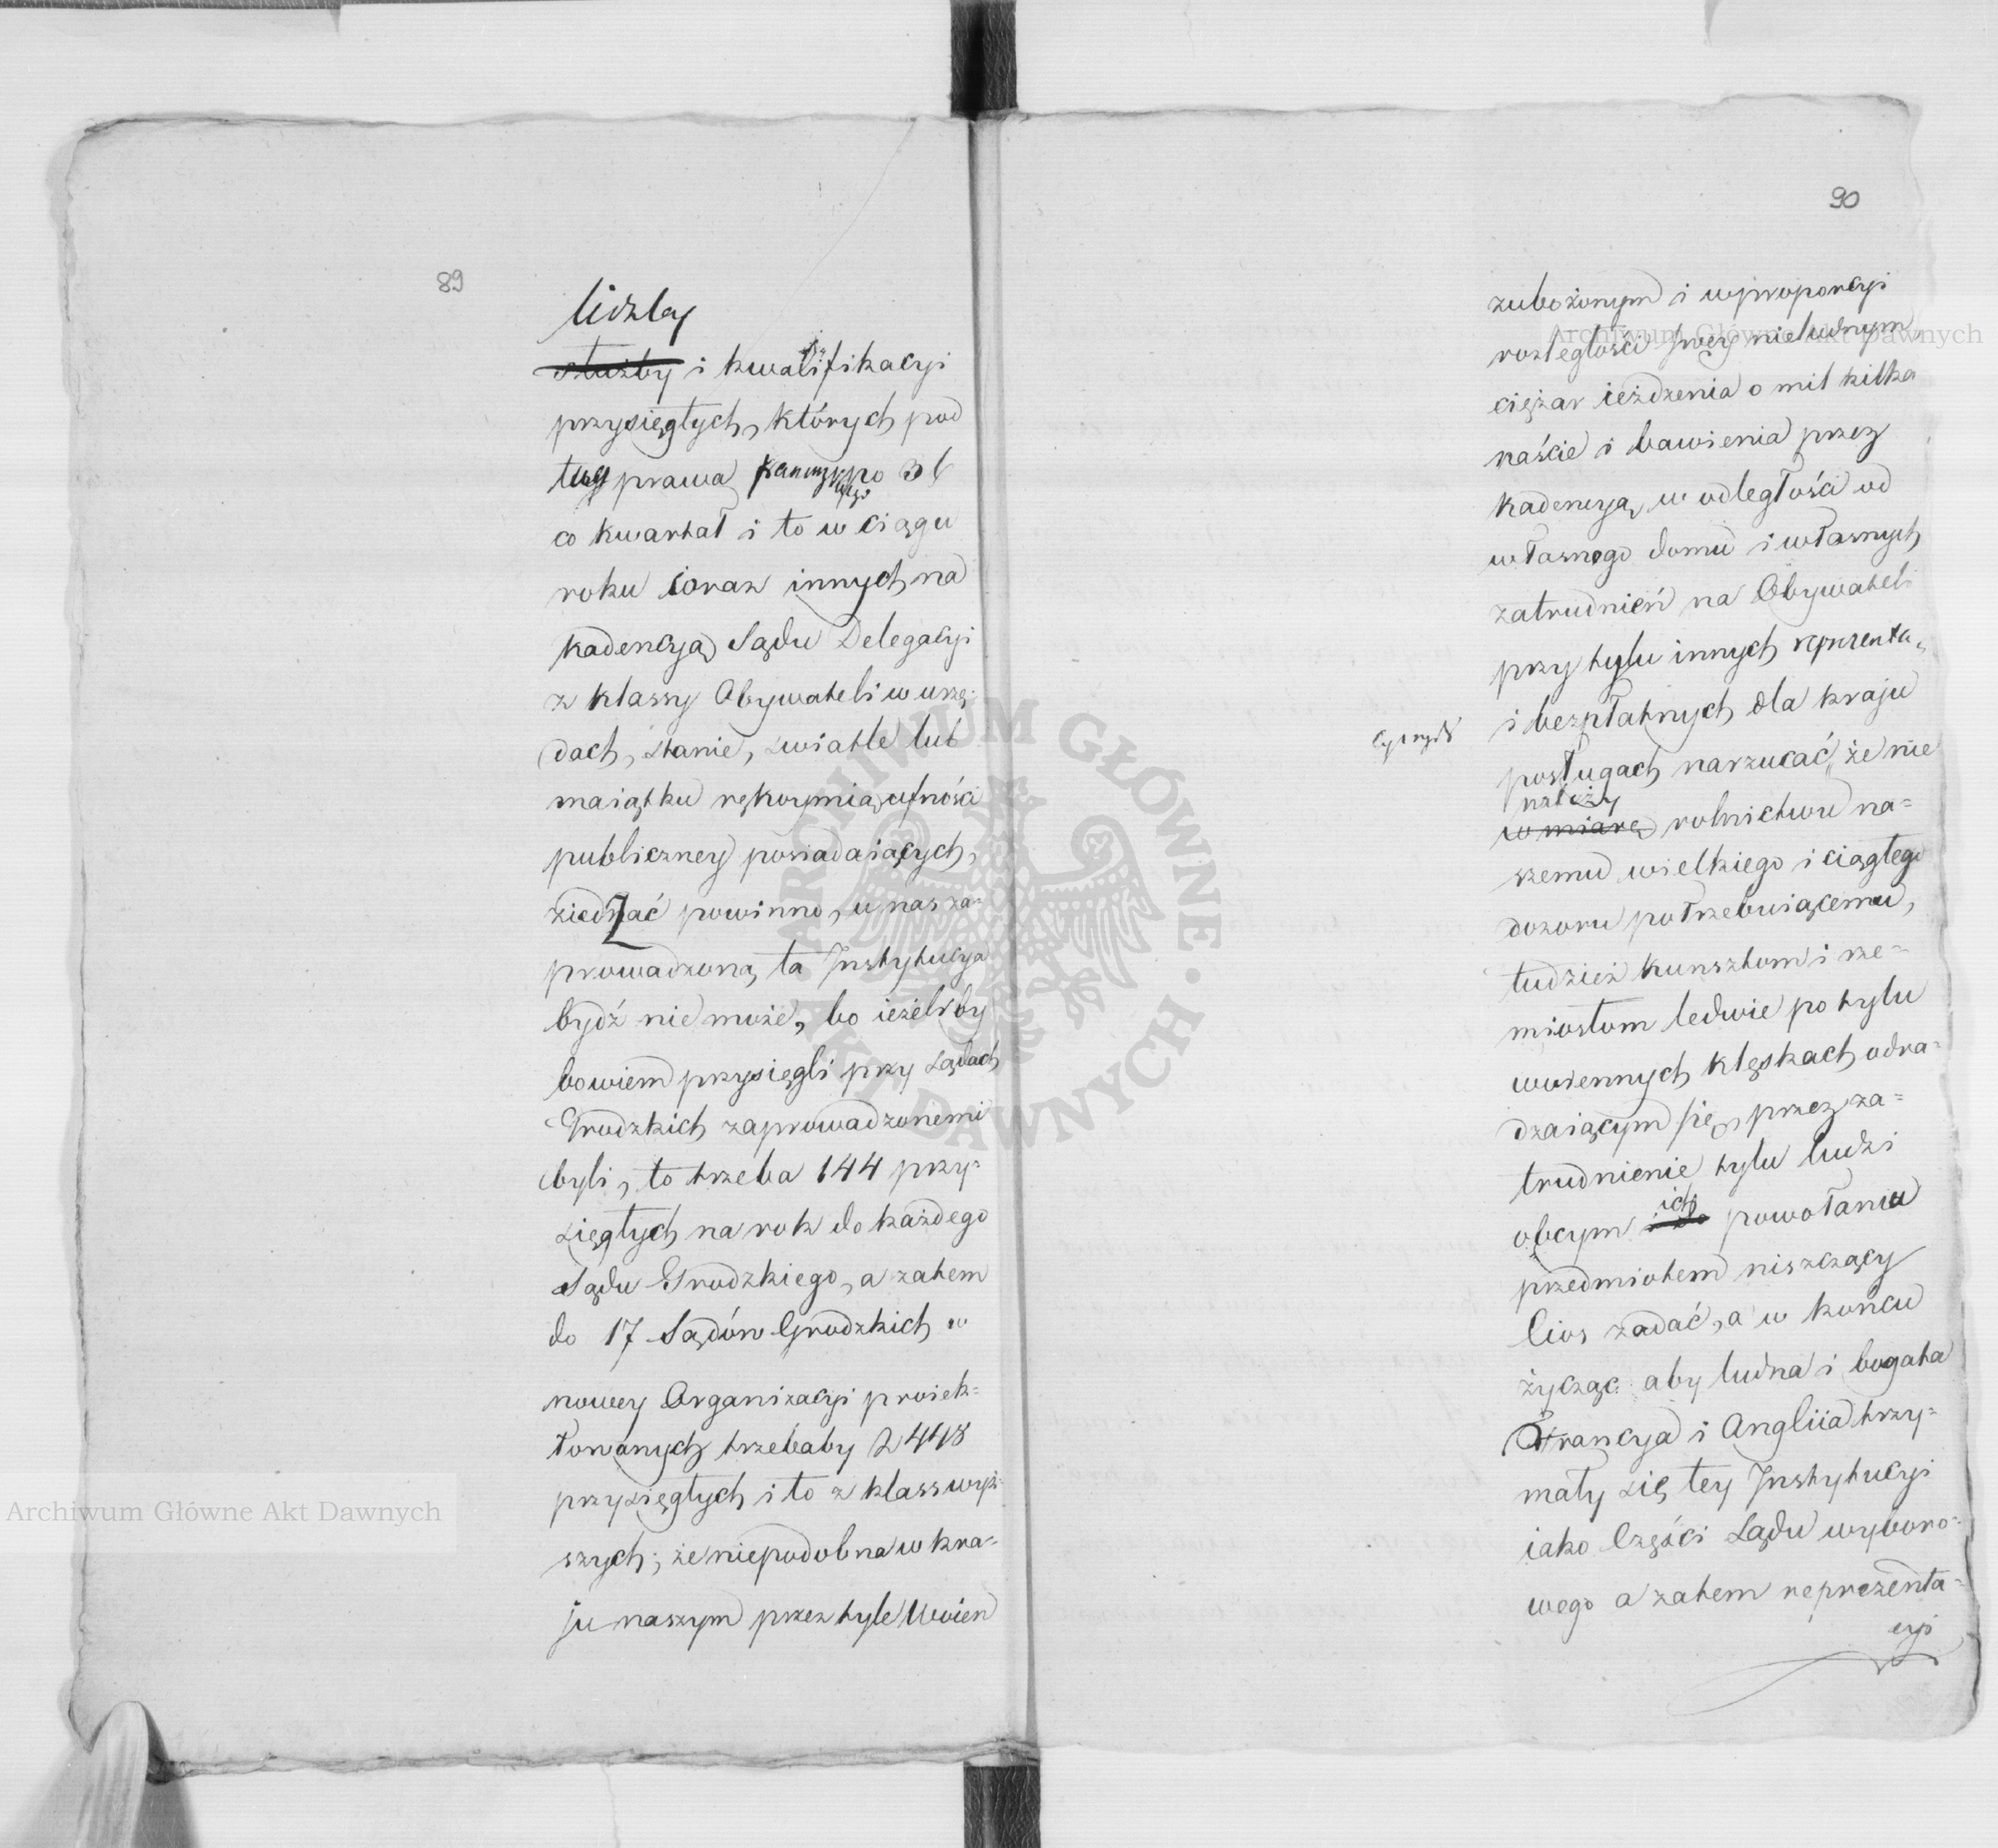 89
liczby
służby i kwalifikacyi
przysięgłych, których pod
ług prawa po 36
co kwartał i to w ciągu
roku coraz innych na
kadencyą Sądu Delegacyi
z klassy Obywateli w urzę-
dach, stanie, świetle lub
maiątku rękoymią ufności
publiczney posiadaiących,
ziednać powinno, u nas za-
prowadzoną ta Instytucya
bydź nie może, bo ieżeliby
bowiem przysięgli przy Sądach
Grodzkich zaprowadzonemi
byli, to trzeba 144 przy-
sięgłych na rok do każdego
Sądu Grodzkiego, a zatem
do 17 Sądów Grodzkich w
nowey Organizacyi proiek-
towanych trzebaby 2448
przysięgłych i to z klass wyż-
szych; że niepodobna w kra-
ju naszym przez tyle Woien
90
zubożonym i w proporcyi
rozległości swey nieludnym
ciężar ieżdzenia o mil kilka
naście i bawienia przez
kadencyą w odległości od
własnego domu i własnych
zatrudnień na Obywateli
przy tylu innych reprezenta.
i bezpłatnych dla kraju
posługach narzucać, że nie
należy
w miarę rolnictwu na-
szemu wielkiego i ciągłego
dozoru potrzebuiącemu,
tudzież kunsztom i rze-
miosłom ledwie po tylu
woiennych klęskach odra-
dzaiącym się, przez za-
trudnienie tylu ludzi
obcym ich powołaniu
przedmiotem niszczący
Cios zadać, a w końcu
życząc aby ludna i bogata
Francya i Angliia trzy-
mały się tey Instytucyi
iako Części Sądu wyboro-
wego a zatem reprezenta-
cyi
Archiwum Główne Akt Dawnych
Archiwum Główne Akt Dawnych
ARCHIWUM GŁÓWNE AKT DAWNYCH